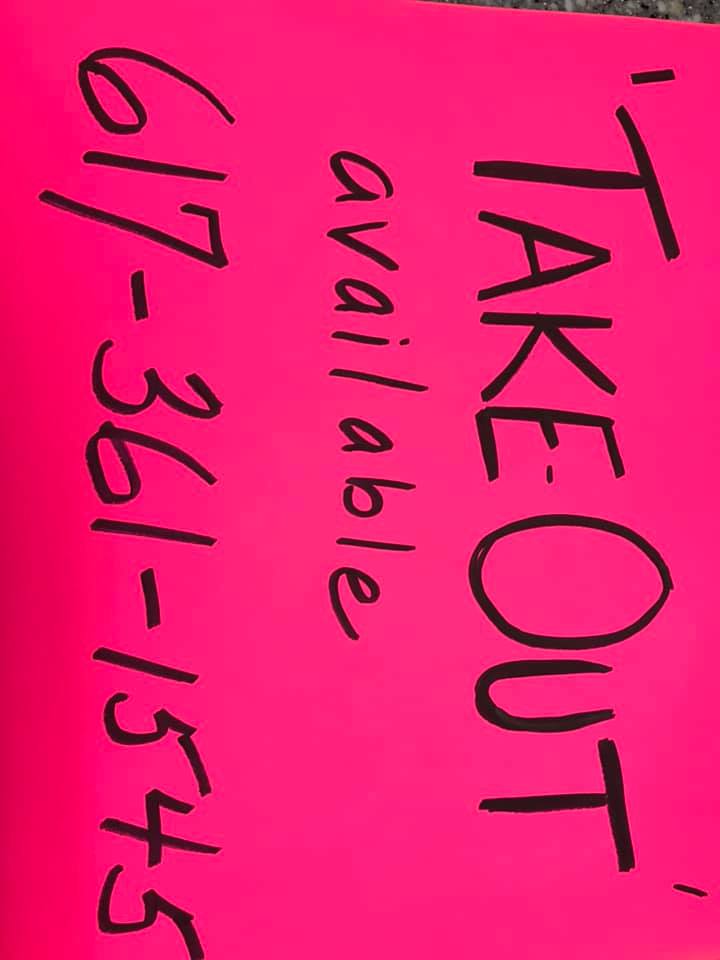 'TAKE-OUT'
available
617-361-1545